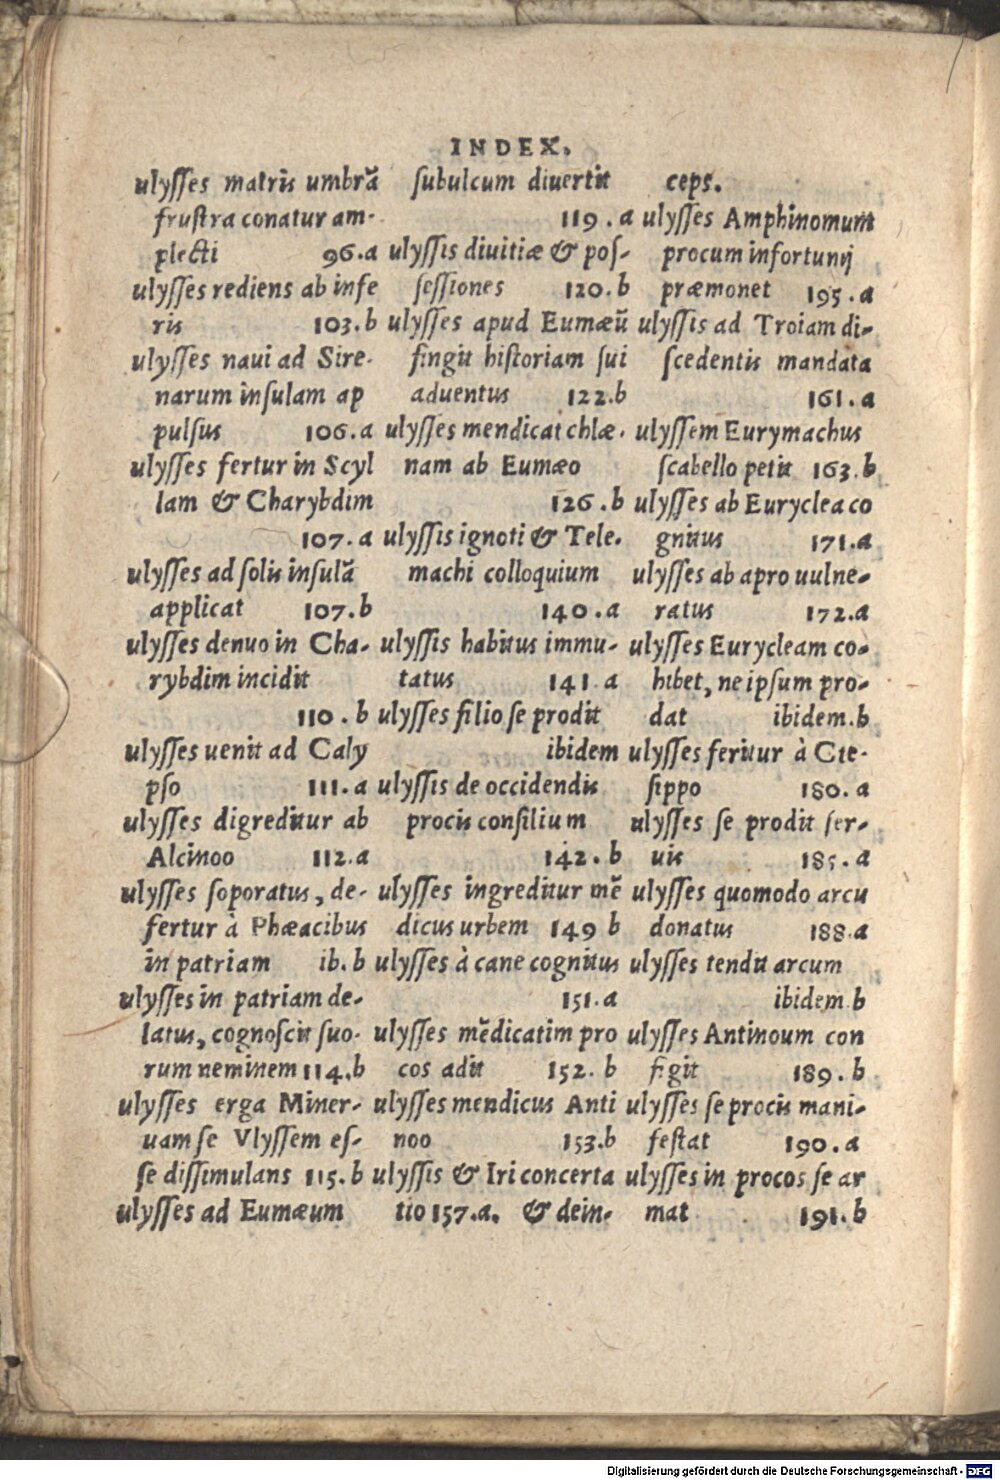 INDEX.
ulyſſes matris umbrã
fruſtra conatur am-
plecti 96.a
ulyſſes rediens ab infe
ris 103.b
ulyſſes naui ad Sire-
narum inſulam ap
pulſus 106.a
ulyſſes fertur in Scyl
lam & Charybdim
107.a
ulyſſes ad ſolis inſulã
applicat 107.b
ulyſſes denuo in Cha-
rybdim incidit
110.b
ulyſſes uenit ad Caly
pſo 111.a
ulyſſes digreditur ab
Alcinoo 112.a
ulyſſes ſoporatus, de-
fertur à Phæacibus
in patriam ib.b
ulyſſes in patriam de-
latus, cognoſcit ſuo-
rum neminem 114.b
ulyſſes erga Miner-
uam ſe Vlyſſem eſ-
ſe diſſimulans 115.b
ulyſſes ad Eumæum
ſubulcum diuertit
119.a
ulyſſis diuitiæ & poſ-
ſeſſiones 120.b
ulyſſes apud Eumæũ
fingit hiſtoriam ſui
aduentus 122.b
ulyſſes mendicat chlæ-
nam ab Eumæo
126.b
ulyſſis ignoti & Tele-
machi colloquium
140.a
ulyſſis habitus immu-
tatus 141.a
ulyſſes filio ſe prodit
ibidem
ulyſſis de occidendis
procis conſilium
142.b
ulyſſes ingreditur mẽ
dicus urbem 149 b
ulyſſes à cane cognitus
151.a
ulyſſes mẽdicatim pro
cos adit 152.b
ulyſſes mendicus Anti
noo 153.b
ulyſſis & Iri concerta
tio 157.a. & dein-
ceps.
ulyſſes Amphinomum
procum infortunij
præmonet 195.a
ulyſſis ad Troiam di-
ſcedentis mandata
161.a
ulyſſem Eurymachus
ſcabello petit 163.b
ulyſſes ab Euryclea co
gnitus 171.a
ulyſſes ab apro uulne-
ratus 172.a
ulyſſes Eurycleam co-
hibet, ne ipſum pro-
dat ibidem.b
ulyſſes feritur à Cte-
ſippo 180.a
ulyſſes ſe prodit ſer-
uis 185.a
ulyſſes quomodo arcu
donatus 188.a
ulyſſes tendit arcum
ibidem.b
ulyſſes Antinoum con
figit 189.b
ulyſſes ſe procis mani-
feſtat 190.a
ulyſſes in procos ſe ar
mat 191.b
Digitalisierung gefördert durch die Deutsche Forschungsgemeinschaft - DFG